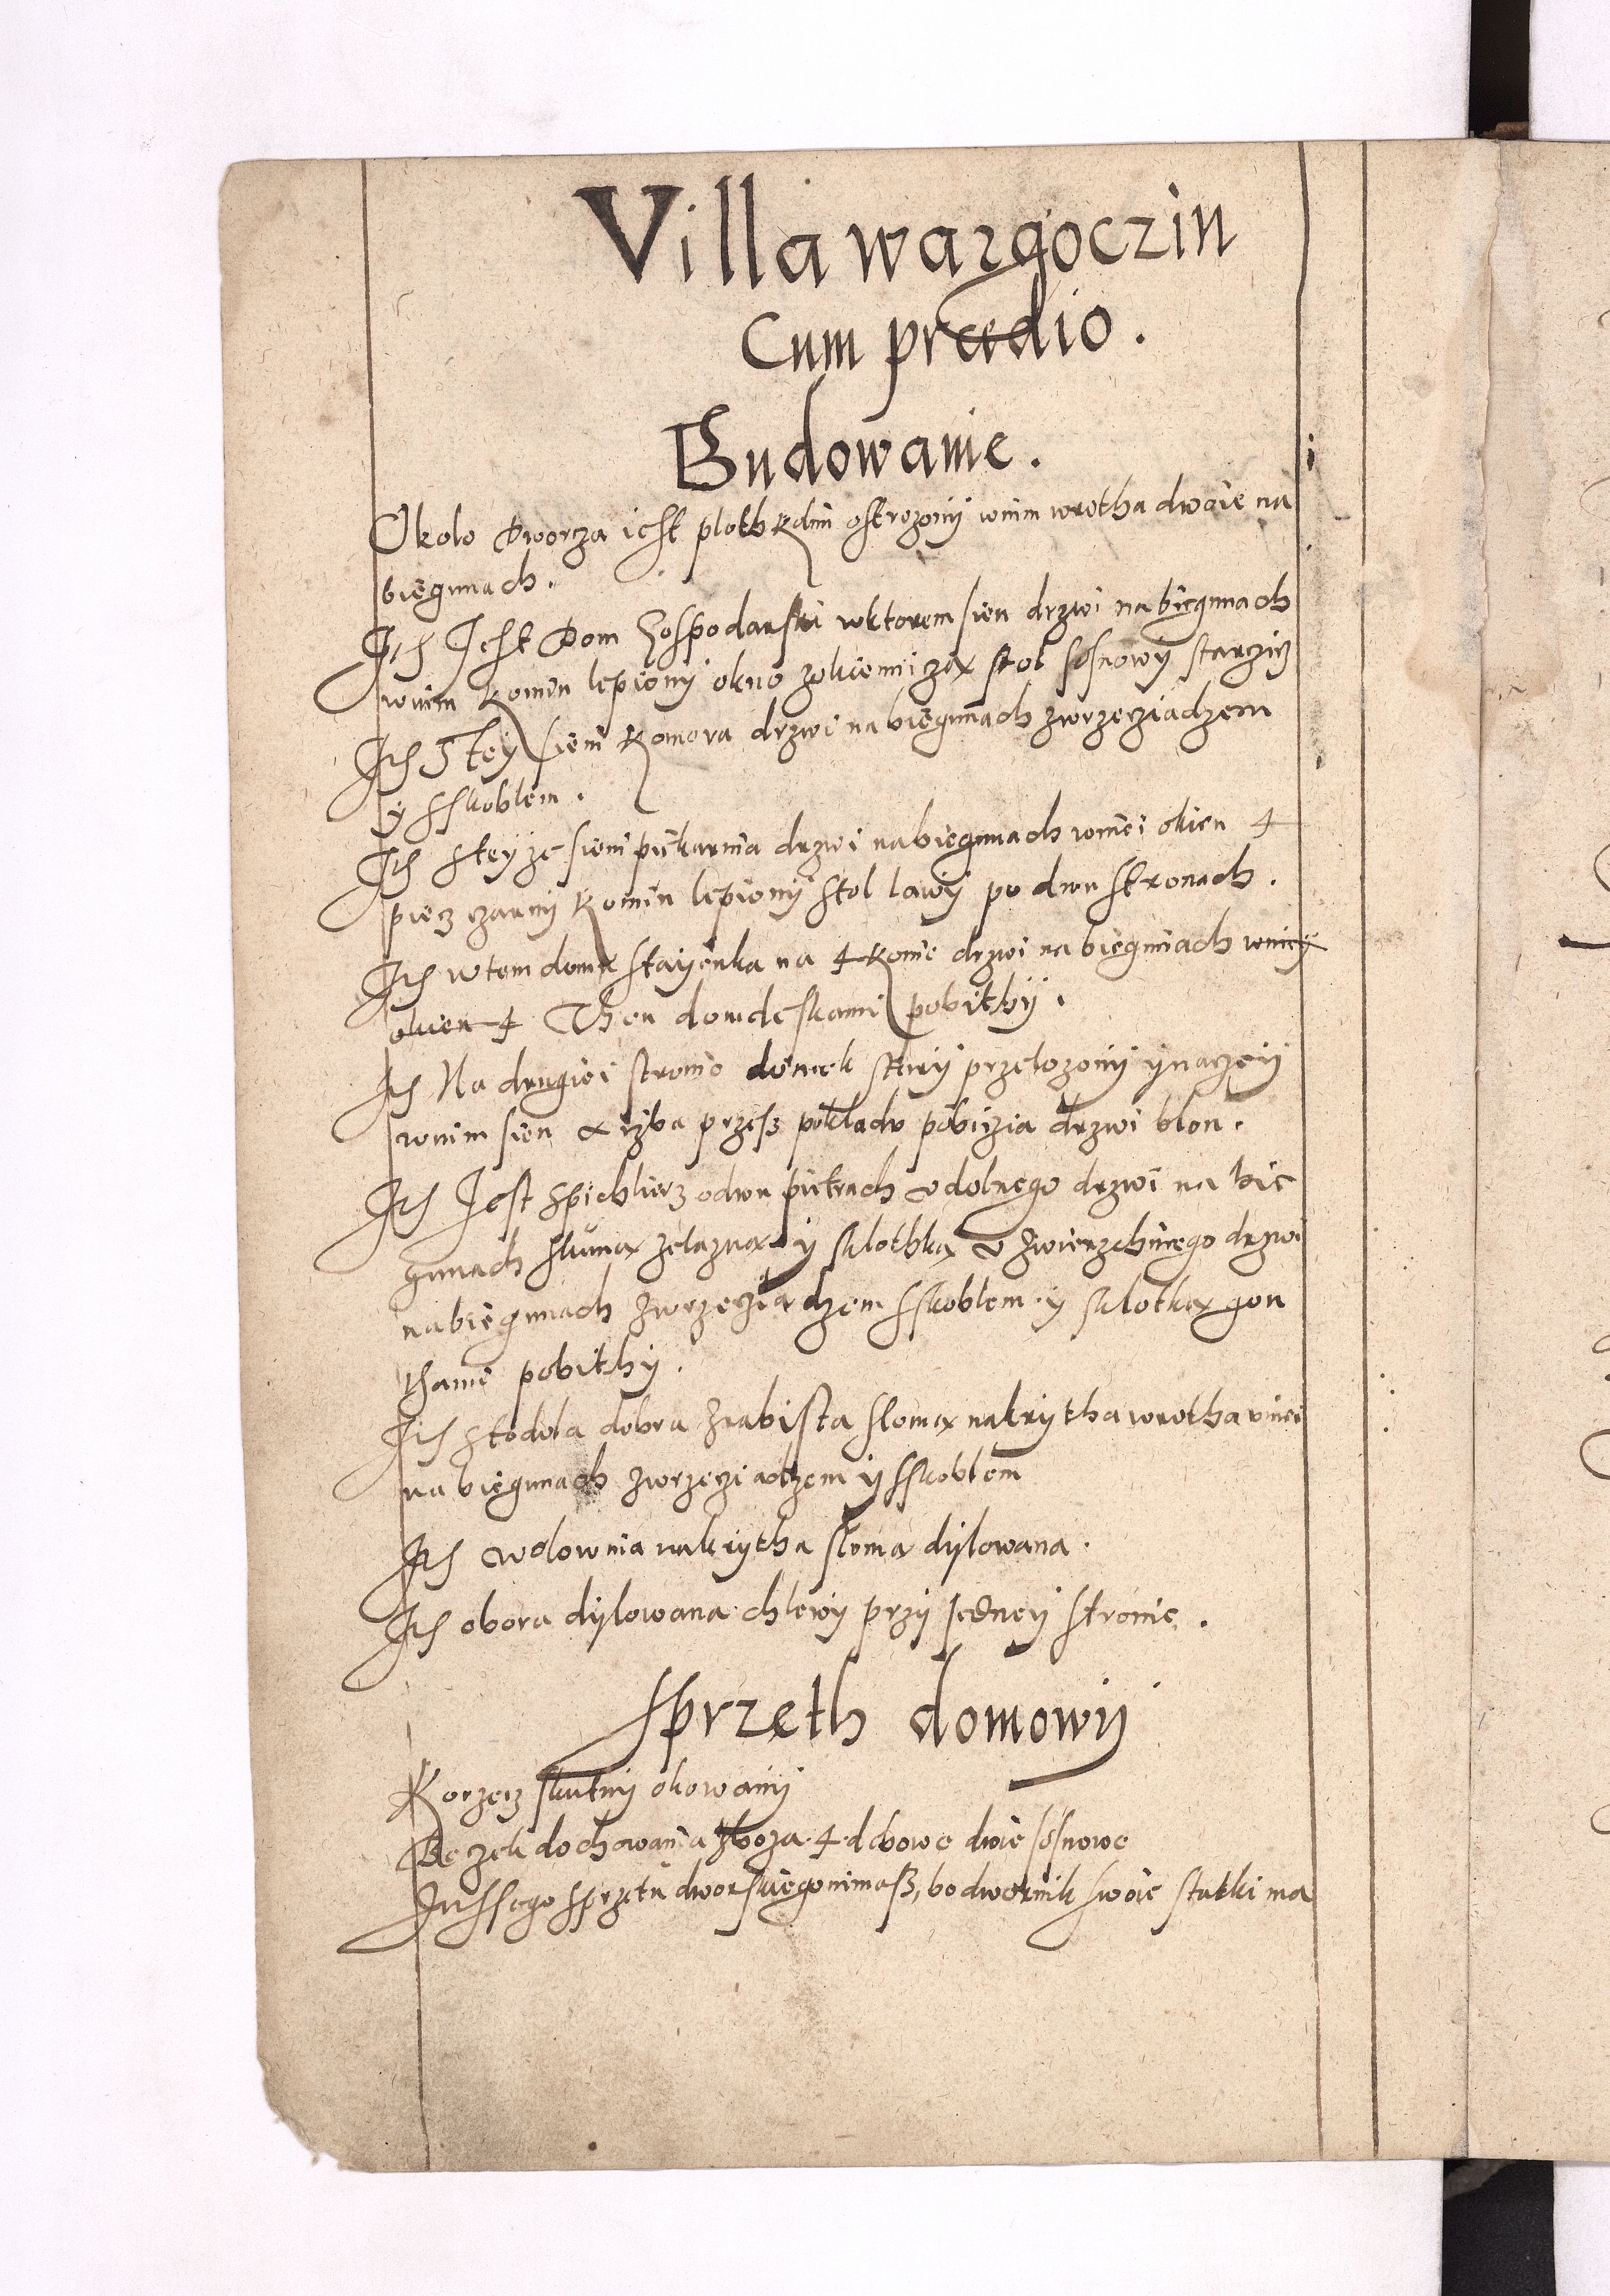 Villa wargoczin
Cum prædio.
Budowanie.
Okolo Dworza iest ploth ostrozony wnim wrotha dwoie na
biegunach.
Jth Jest Dom Gospodarski wktorem sien drzwi na biegunach
wnim komin lepiony okno zokiennicza stol sosnowy
Jth S tey sieni komora drzwi na biegunach zwrzecziadzem
y sskoblem.
Jth stey ze sieni piekarnia drzwi nabiegunach wniei okien 4
piecz czarny komin lepiony stol lawy po dwu stronach.
Jth wtem domu stayenka na 4 konie drzwi na biegunach wniey
okien 4 Then dom deskami pobithy.
Jth Na drugiei stronie domek stary przelozony ynaczey
wnim sien & izba przesz pokladu pobiczia drzwi blon.
Jth Jest spichlierz odwu pietrach v dolnego drzwi na bie
gunach skuma zelazna y klothka v zwierzchniego drzwi
nabiegunach zwrzecziadzem sskoblem y klotka gon
thami pobithy.
Jth stodola dobra zrabista sloma nakrytha wrotha vniei
na biegunach zwrzecziadzem y sskoblem
Jth wolownia nakrytha sloma dylowana.
Jth obora dylowana chlewy przy Jedney stronie.
sprzeth domowy
Korzecz okowany
Beczek dochowania zboza 4 debowe dwie sosnowe
Jnssego sprzetu dworskiego nimasz, bo dwornik swoie statki ma